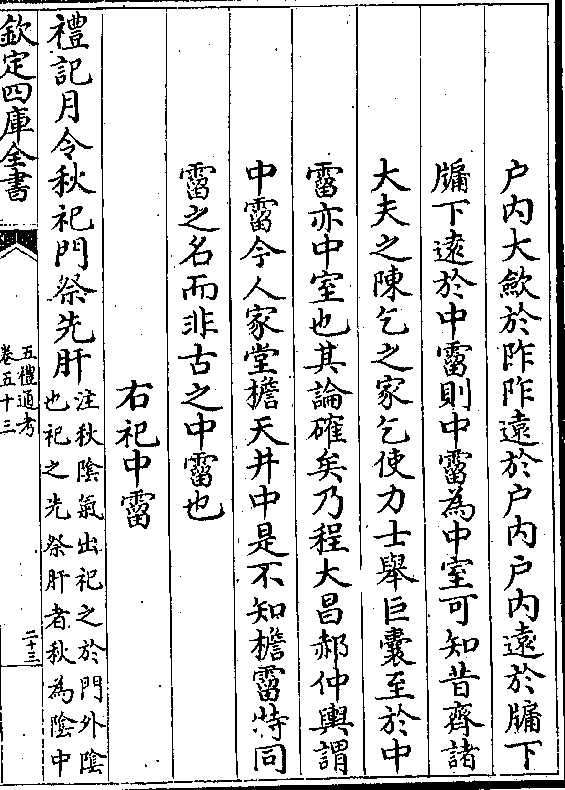 户内大歛於阼阼遠於户内户内遠於牖下
牖下遠於中霤則中霤為中室可知昔齊諸
大夫之陳乞之家乞使力士舉巨囊至於中
霤亦中室也其論確矣乃程大昌郝仲輿謂
中霤今人家堂檐天井中是不知檐霤特同
霤之名而非古之中霤也
右祀中霤
禮記月令秋祀門祭先肝
注秋陰氣出祀之於門外陰
也祀之先祭肝者秋為陰中
欽定四庫全書
五禮通考
卷五十三
二十三